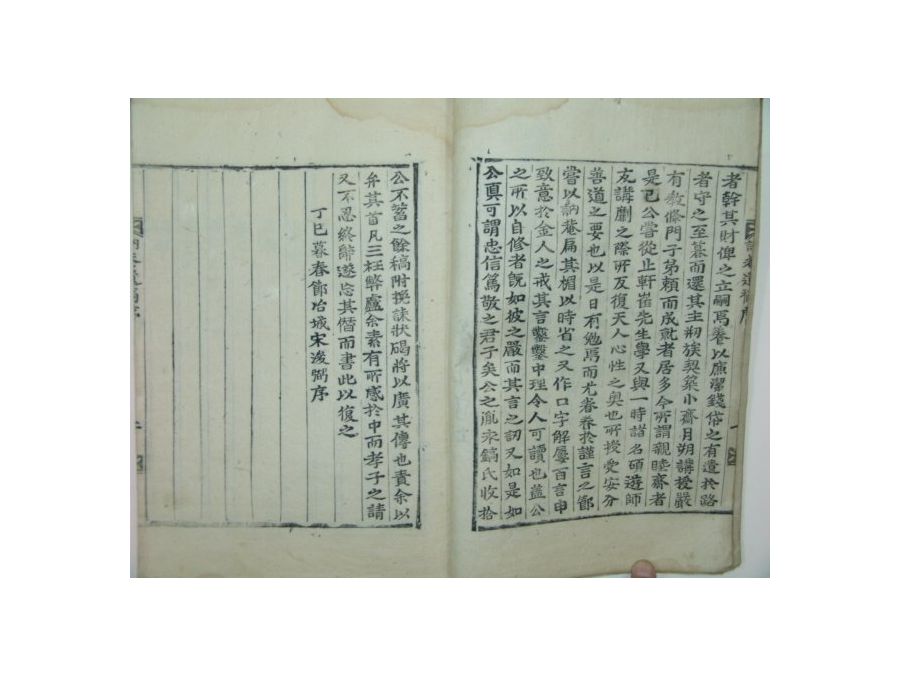 者幹其財俾之立嗣焉養以廉潔錢帒之有遺於路
者守之至暮而還其主朔族契築小齋月朔講授嚴
有教條門子弟頼而成就者居多今所謂親睦齋者
是已公嘗從止軒崔先生學又與一時諸名碩遊師
友講劘之際所反復天人心性之奧也所授受安分
善道之要也以是日有勉焉而尤眷眷於謹言之節
嘗以訥菴扁其楣以時省之又作口字解屢百言申
致意於金人之戒其言鑿鑿中理令人可讀也盖公
之所以自修者旣如彼之嚴而其言之訒又如是如
公眞可謂忠信篤敬之君子矣公之胤永鎬氏收拾
公不蓄之餘稿附撰誄狀碣將以廣其傳也責余以
弁其首凡三枉弊廬余素有所感於中而孝子之請
又不忍終辭遂忘其僭而書此以復之
丁巳暮春節冶城宋浚弼序